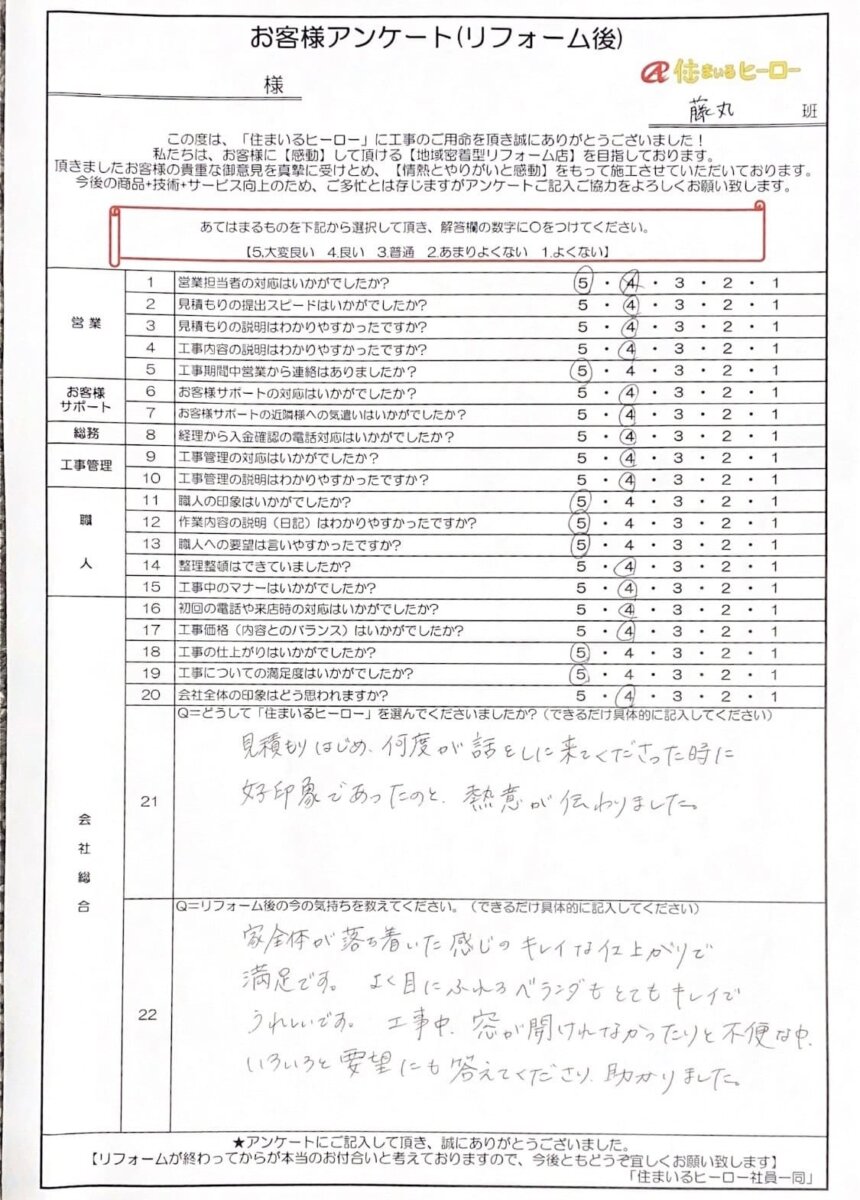 お客様アンケート(リフォーム後)
様
住まいるヒーロー
藤丸 班
この度は、「住まいるヒーロー」に工事のご用命を頂き誠にありがとうございました！
私たちは、お客様に【感動】して頂ける【地域密着型リフォーム店】を目指しております。
頂きましたお客様の貴重な御意見を真摯に受けとめ、【情熱とやりがいと感動】をもって施工させていただいております。
今後の商品+技術+サービス向上のため、ご多忙とは存じますがアンケートご記入ご協力をよろしくお願い致します。
あてはまるものを下記から選択して頂き、解答欄の数字に〇をつけてください。
【5.大変良い 4.良い 3.普通 2.あまりよくない 1.よくない】
営業
1 営業担当者の対応はいかがでしたか? 5・4・3・2・1
2 見積もりの提出スピードはいかがでしたか? 5・4・3・2・1
3 見積もりの説明はわかりやすかったですか? 5・4・3・2・1
4 工事内容の説明はわかりやすかったですか? 5・4・3・2・1
5 工事期間中営業から連絡はありましたか? 5・4・3・2・1
お客様
サポート
6 お客様サポートの対応はいかがでしたか? 5・4・3・2・1
7 お客様サポートの近隣様への気遣いはいかがでしたか? 5・4・3・2・1
総務
8 経理から入金確認の電話対応はいかがでしたか? 5・4・3・2・1
工事管理
9 工事管理の対応はいかがでしたか? 5・4・3・2・1
10 工事管理の説明はわかりやすかったですか? 5・4・3・2・1
職人
11 職人の印象はいかがでしたか? 5・4・3・2・1
12 作業内容の説明（日記）はわかりやすかったですか? 5・4・3・2・1
13 職人への要望は言いやすかったですか? 5・4・3・2・1
14 整理整頓はできていましたか? 5・4・3・2・1
15 工事中のマナーはいかがでしたか? 5・4・3・2・1
会社総合
16 初回の電話や来店時の対応はいかがでしたか? 5・4・3・2・1
17 工事価格（内容とのバランス）はいかがでしたか? 5・4・3・2・1
18 工事の仕上がりはいかがでしたか? 5・4・3・2・1
19 工事についての満足度はいかがでしたか? 5・4・3・2・1
20 会社全体の印象はどう思われますか? 5・4・3・2・1
21 Q=どうして「住まいるヒーロー」を選んでくださいましたか?（できるだけ具体的に記入してください）
見積もりはじめ、何度が話をしに来てくださった時に
好印象であったのと、熱意が伝わりました。
22 Q=リフォーム後の今の気持ちを教えてください。（できるだけ具体的に記入してください）
家全体が落ち着いた感じのキレイな仕上がりで
満足です。 よく目にふれるベランダもとてもキレイで
うれしいです。 工事中、窓が開けれなかったりと不便な中、
いろいろと要望にも答えてくださり、助かりました。
★アンケートにご記入して頂き、誠にありがとうございました。
【リフォームが終わってからが本当のお付合いと考えておりますので、今後ともどうぞ宜しくお願い致します】
「住まいるヒーロー社員一同」